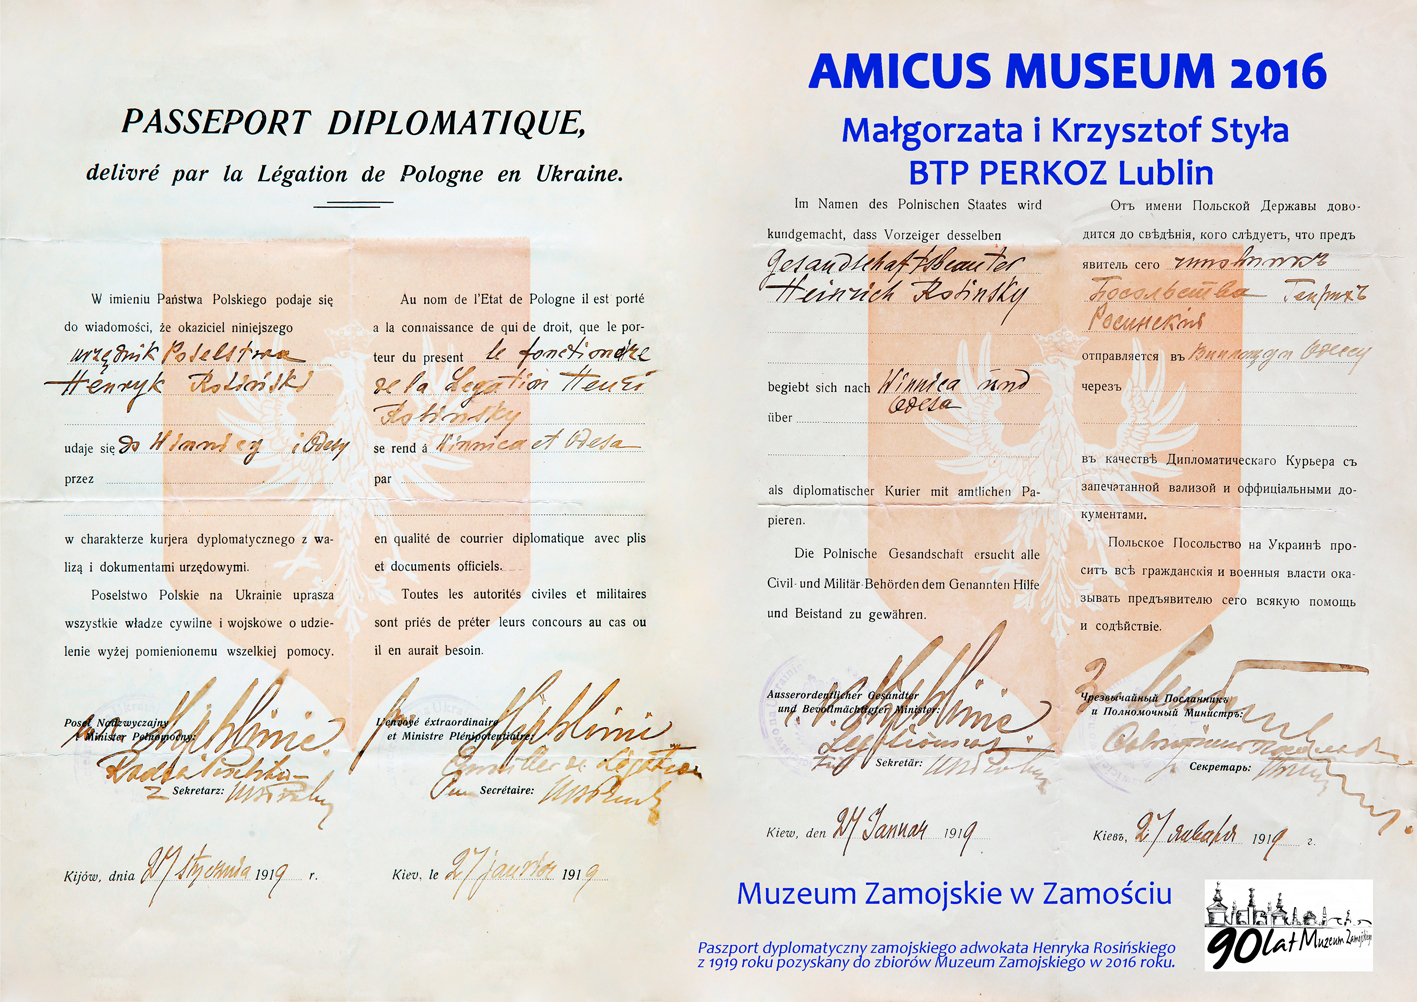 PASSEPORT DIPLOMATIQUE,
delivré par la Légation de Pologne en Ukraine.
W imieniu Państwa Polskiego podaje się
do wiadomości, że okaziciel niniejszego
urzędnik Poselstwa
Henryk Rosiński
udaje się do Winnicy i Odesy
przez
w charakterze kurjera dyplomatycznego z wa-
lizą i dokumentami urzędowymi.
Poselstwo Polskie na Ukrainie uprasza
wszystkie władze cywilne i wojskowe o udzie-
lenie wyżej pomienionemu wszelkiej pomocy.
Poseł Nadzwyczajny
i Minister Pełnomocny:
Radca Poselstwa
Sekretarz:
Kijów, dnia 27 stycznia 1919 r.
Au nom de l'Etat de Pologne il est porté
a la connaissance de qui de droit, que le por-
teur du present le fonctionaire
de la Légation Henri
Rosinsky
se rend á Winnica et Odesa
par
en qualité de courrier diplomatique avec plis
et documents officiels.
Toutes les autorités civiles et militaires
sont priés de préter leurs concours au cas ou
il en aurait besoin.
L'envoyé éxtraordinaire
et Ministre Plénipotentiaire:
Conseiller de Légation
Secrétaire:
Kiev, le 27 janvier 1919
AMICUS MUSEUM 2016
Małgorzata i Krzysztof Styła
BTP PERKOZ Lublin
Im Namen des Polnischen Staates wird
kundgemacht, dass Vorzeiger desselben
Gesandschaftsbeamter
Heinrich Rosinsky
begiebt sich nach Winnica und
Odesa
über
als diplomatischer Kurier mit amtlichen Pa-
pieren.
Die Polnische Gesandschaft ersucht alle
Civil- und Militär-Behörden dem Genannten Hilfe
und Beistand zu gewähren.
Ausserordentlicher Gesandter
und Bevollmächtigter Minister:
Sekretär:
Kiew, den 27 Januar 1919
Отъ имени Польской Державы дово-
дится до свѣдѣнія, кого слѣдуетъ, что предъ
явитель сего чиновникъ
Посольства Генрихъ
Росинскій
отправляется въ Винницу и Одессу
черезъ
въ качествѣ Дипломатическаго Курьера съ
запечатанной вализой и оффиціальными до-
кументами.
Польское Посольство на Украинѣ про-
ситъ всѣ гражданскія и военныя власти ока-
зывать предъявителю сего всякую помощь
и содѣйствіе.
Чрезвычайный Посланникъ
и Полномочный Министръ:
Секретарь:
Кіевъ, 27 января 1919 г.
Muzeum Zamojskie w Zamościu
Paszport dyplomatyczny zamojskiego adwokata Henryka Rosińskiego
z 1919 roku pozyskany do zbiorów Muzeum Zamojskiego w 2016 roku.
90 lat Muzeum Zamojskiego